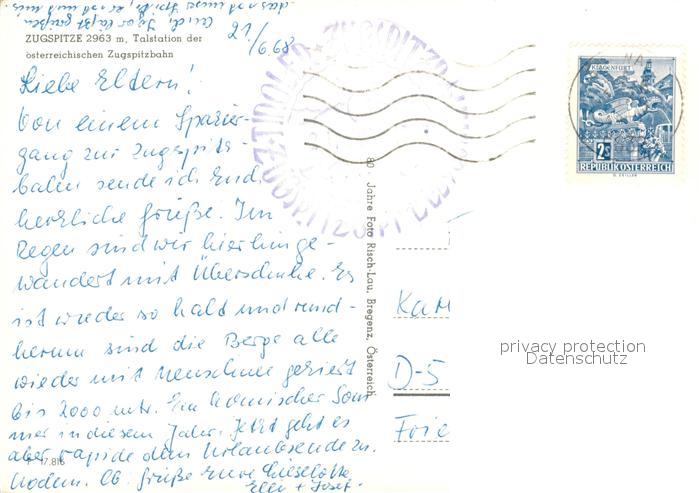 auch. Igor läßt grüßen
ZUGSPITZE 2963 m, Talstation der
österreichischen Zugspitzbahn
21/6.68
Liebe Eltern!
Von einem Spazier-
gang zur Zugspitz-
bahn sende ich Euch
herzliche Grüße. Im
Regen sind wir hierhinge-
wandert mit Überschuhe. Es
ist wieder so kalt und rund-
herum sind die Berge alle
wieder mit Neuschnee geziert
bis 2000 mtr. Ein komischer Som
mer in diesem Jahr. Jetzt geht es
aber rapide dem Urlaubsende zu.
Lb. Grüße Eure Lieselotte
Elli + Josef.
17.816
80 Jahre Foto Risch-Lau, Bregenz, Österreich
TIROLER ZUGSPITZBAHN
KLAGENFURT
2S
REPUBLIK ÖSTERREICH
Kar
D-5
Frie
privacy protection
Datenschutz